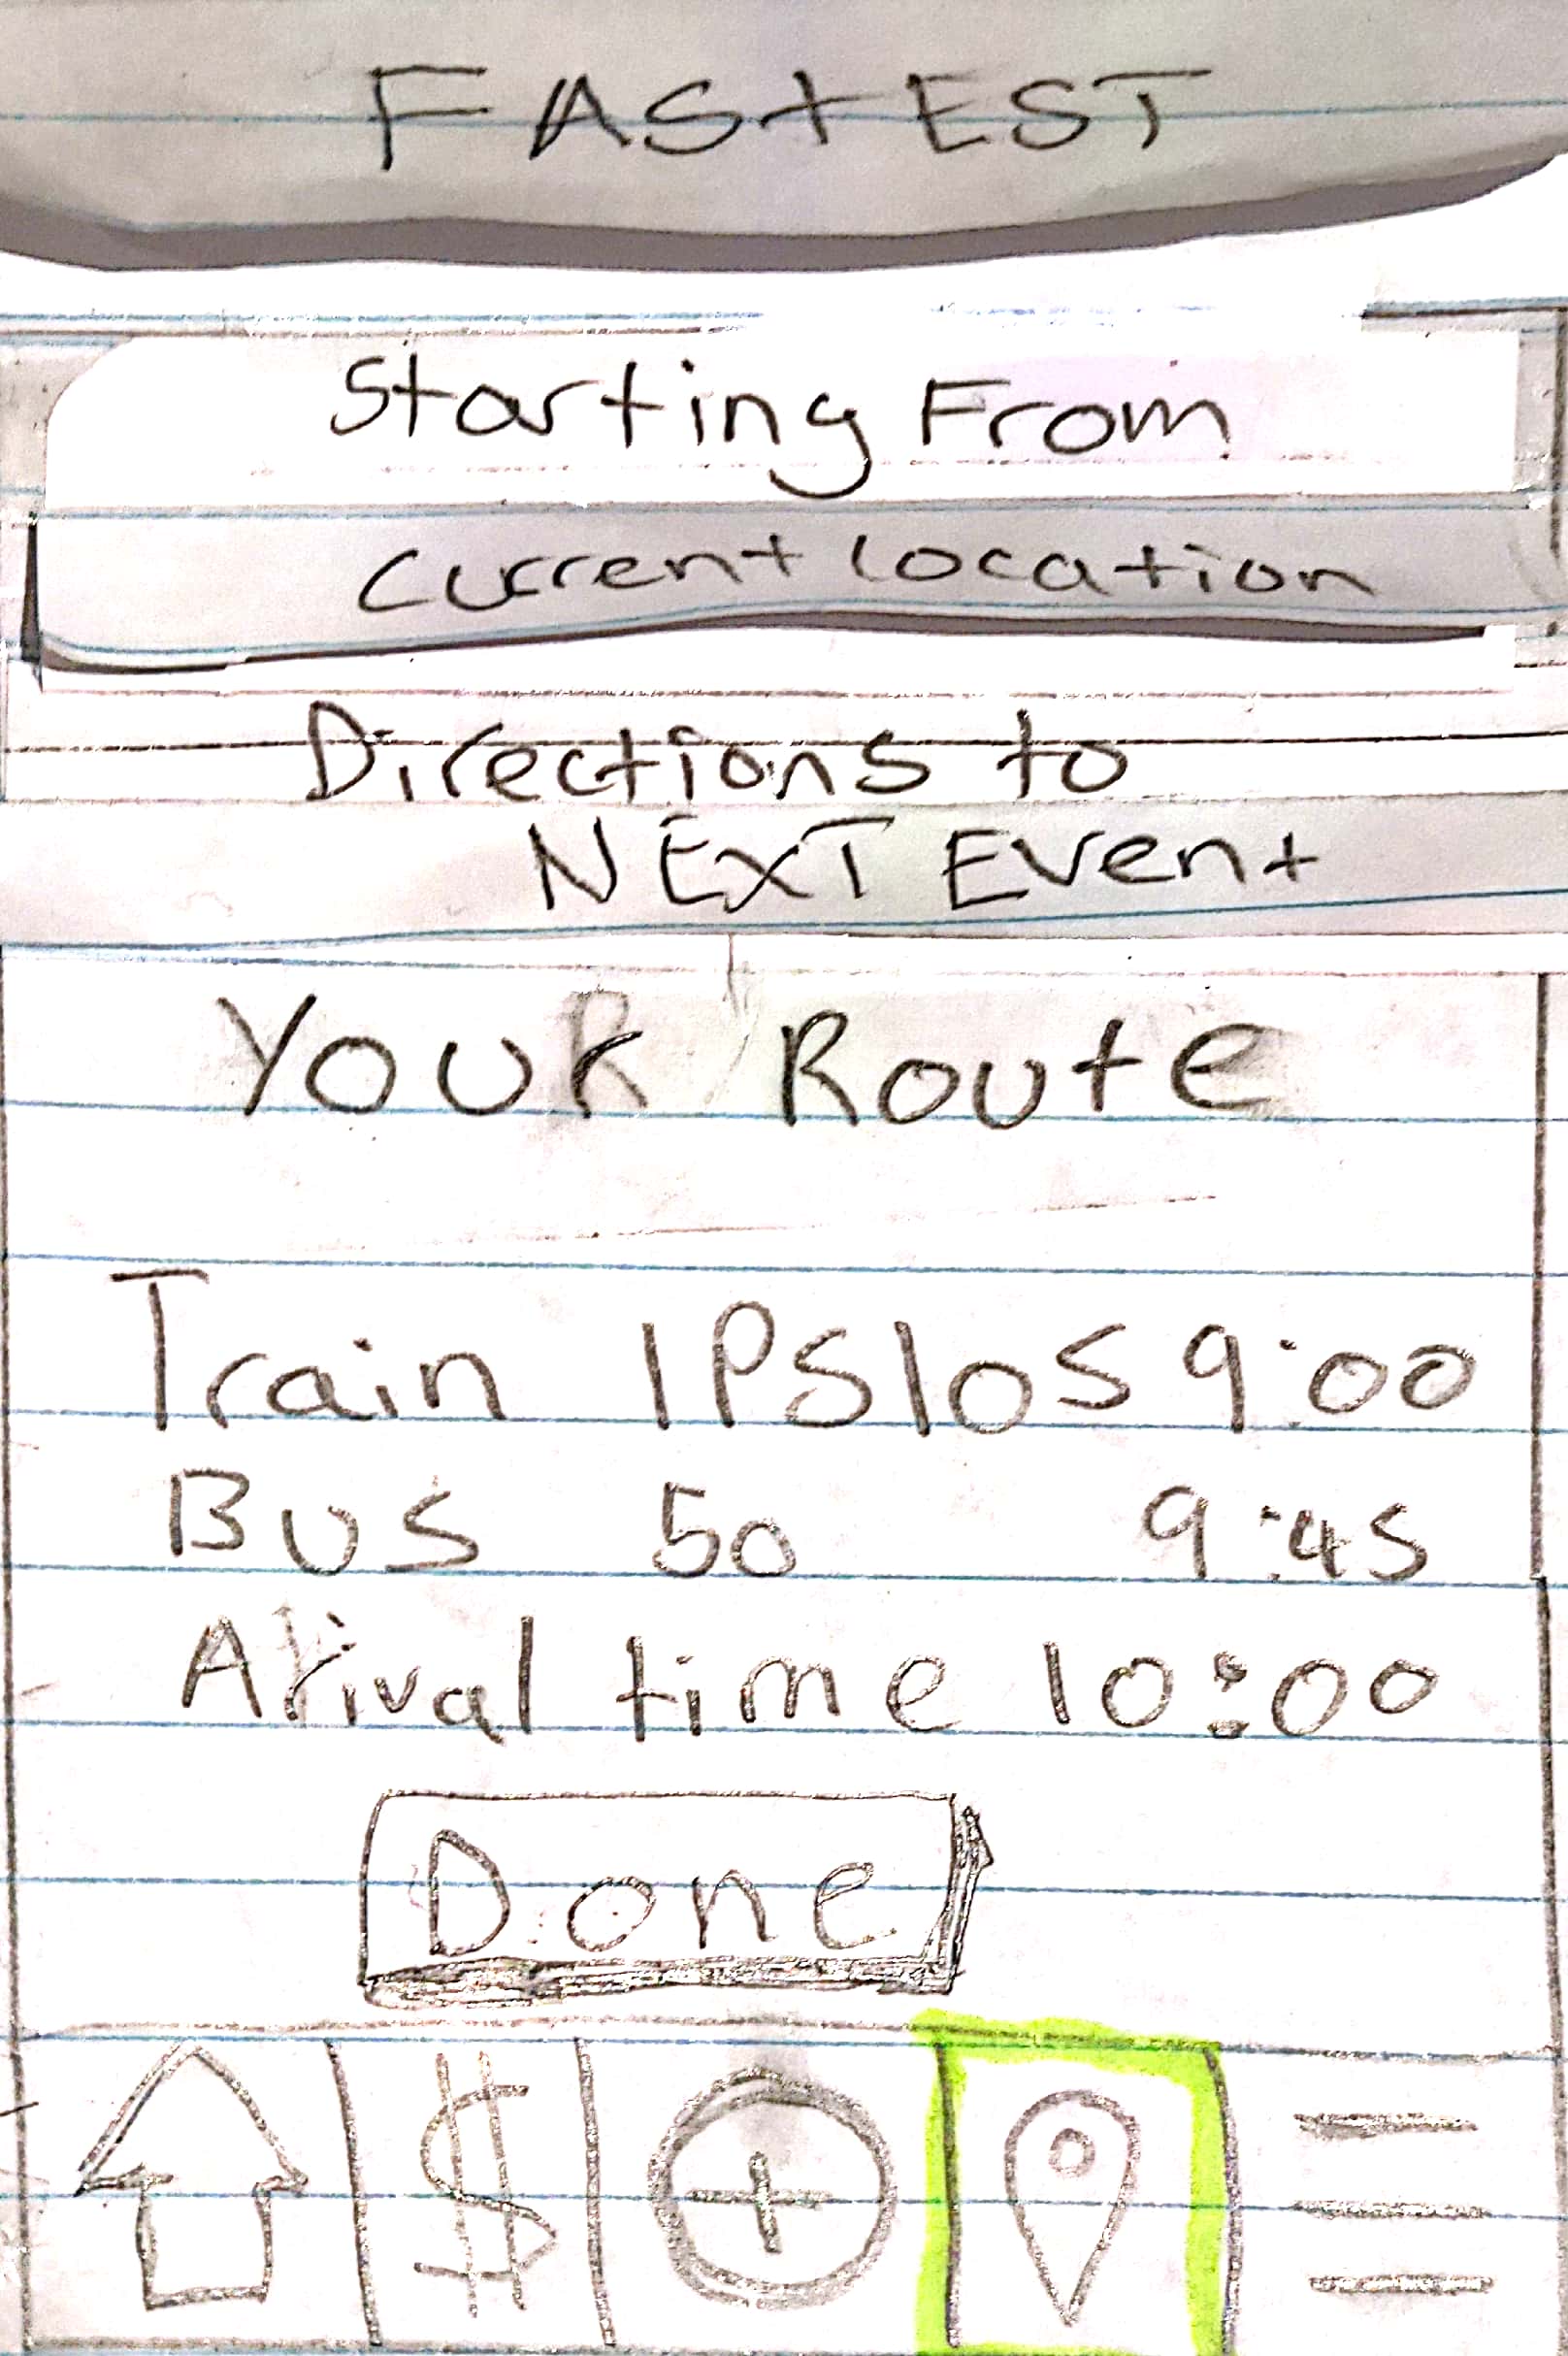 FAStEST
Starting From
Current location
Directions to
NEXT Event
YOUR Route
Train IPSlos 9:00
BUS 50 9:45
Arival time 10:00
Done
$
+